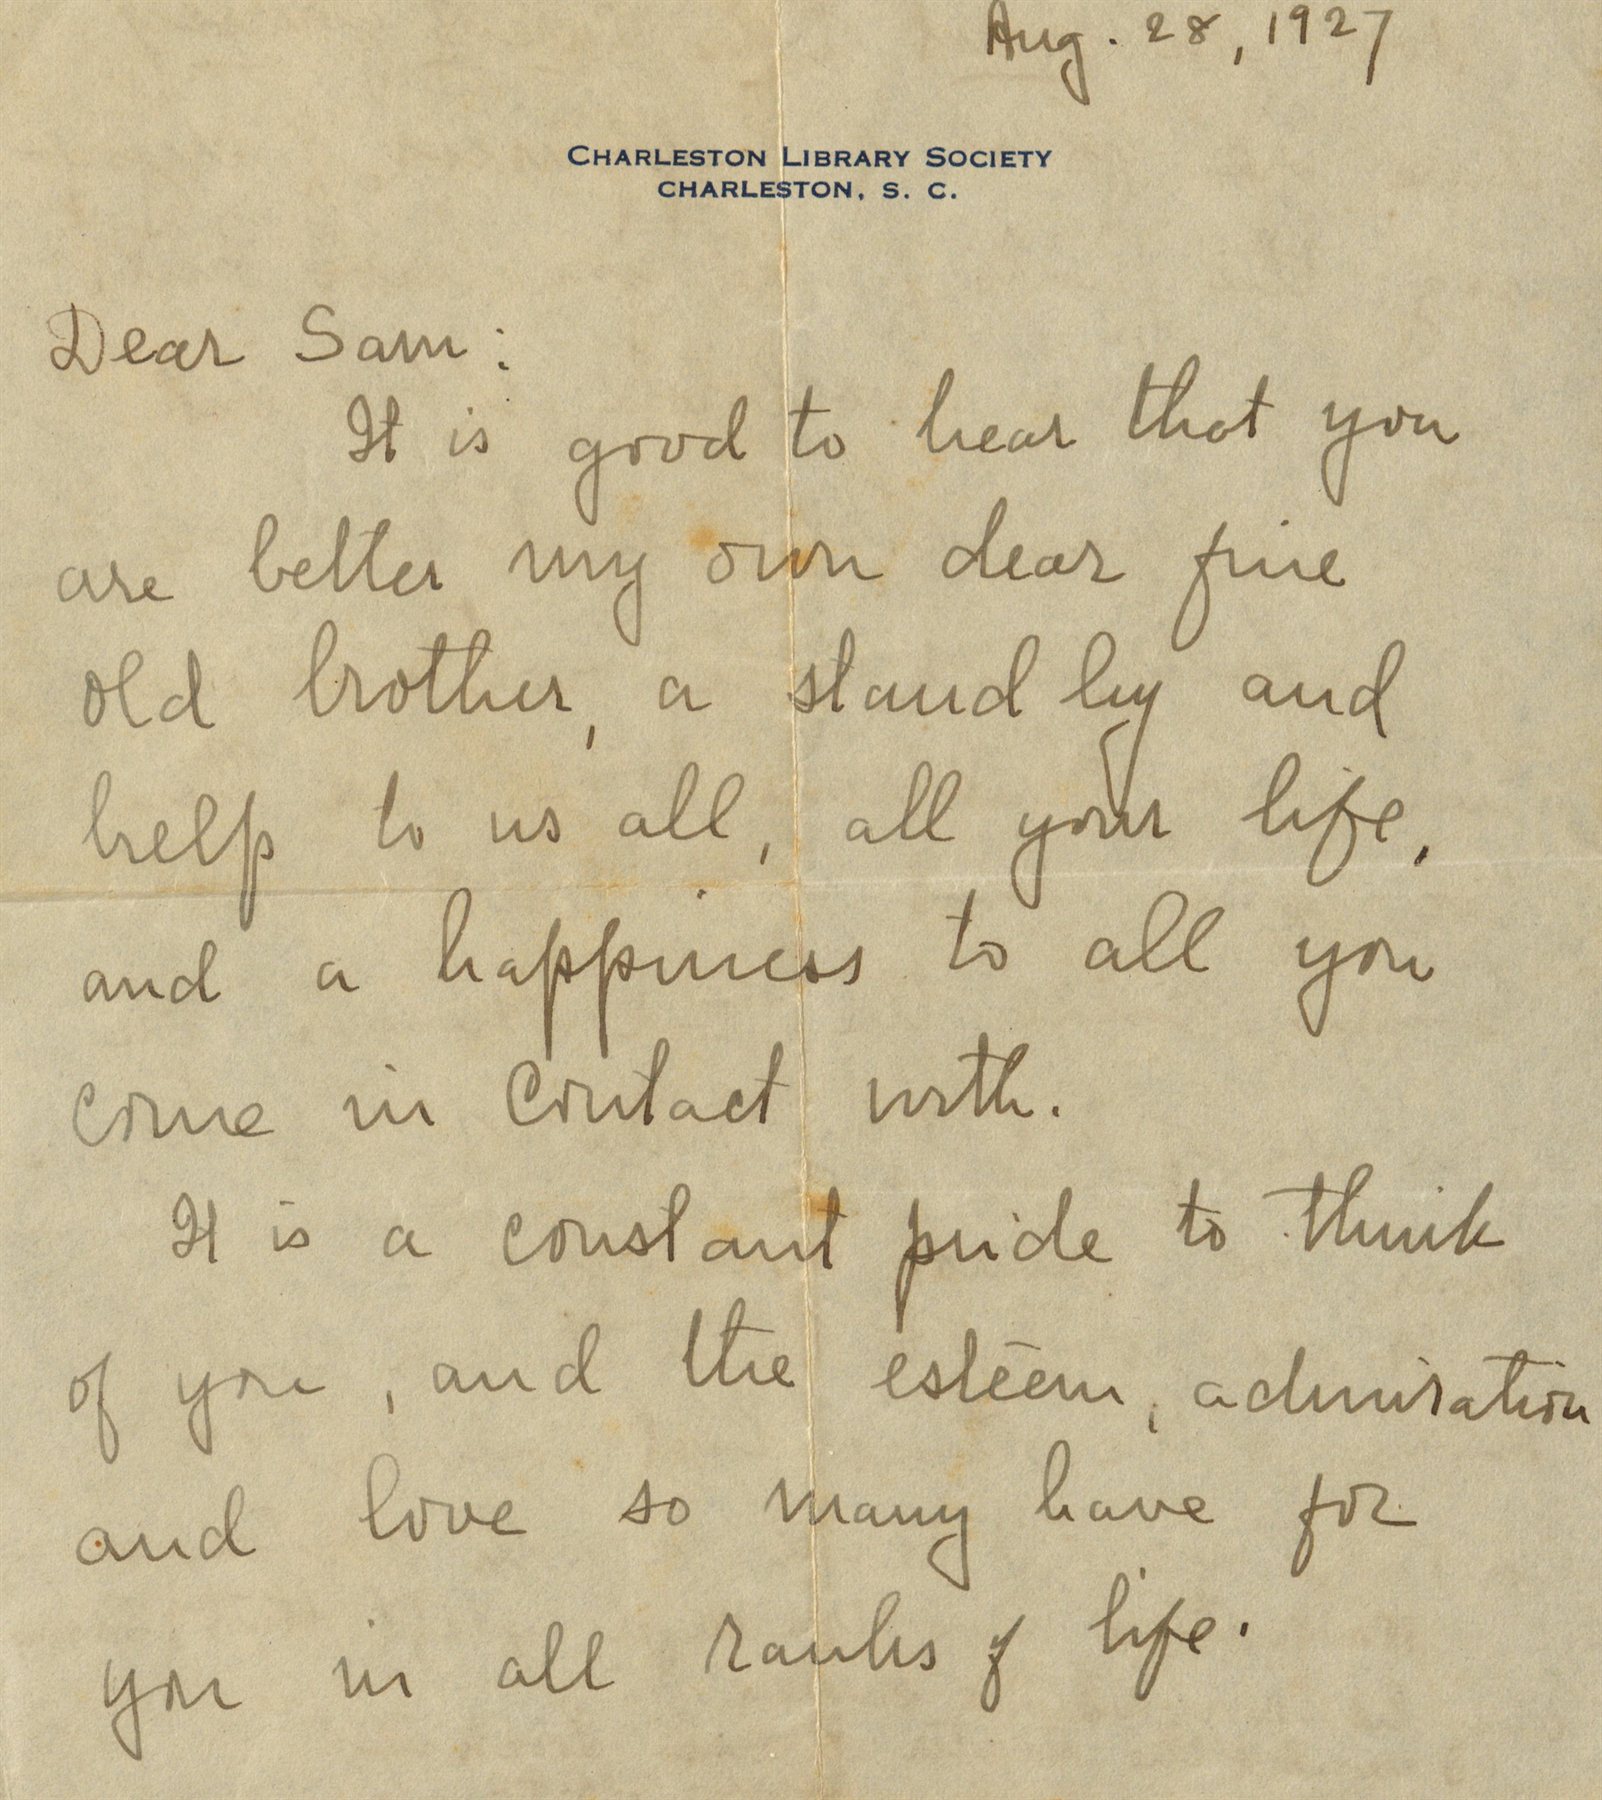 Aug. 28, 1927
CHARLESTON LIBRARY SOCIETY
CHARLESTON, S. C.
Dear Sam:
It is good to hear that you
are better my own dear fine
old brother, a stand by and
help to us all, all your life,
and a happiness to all you
come in contact with.
It is a constant pride to think
of you, and the esteem, admiration
and love so many have for
you in all ranks of life.